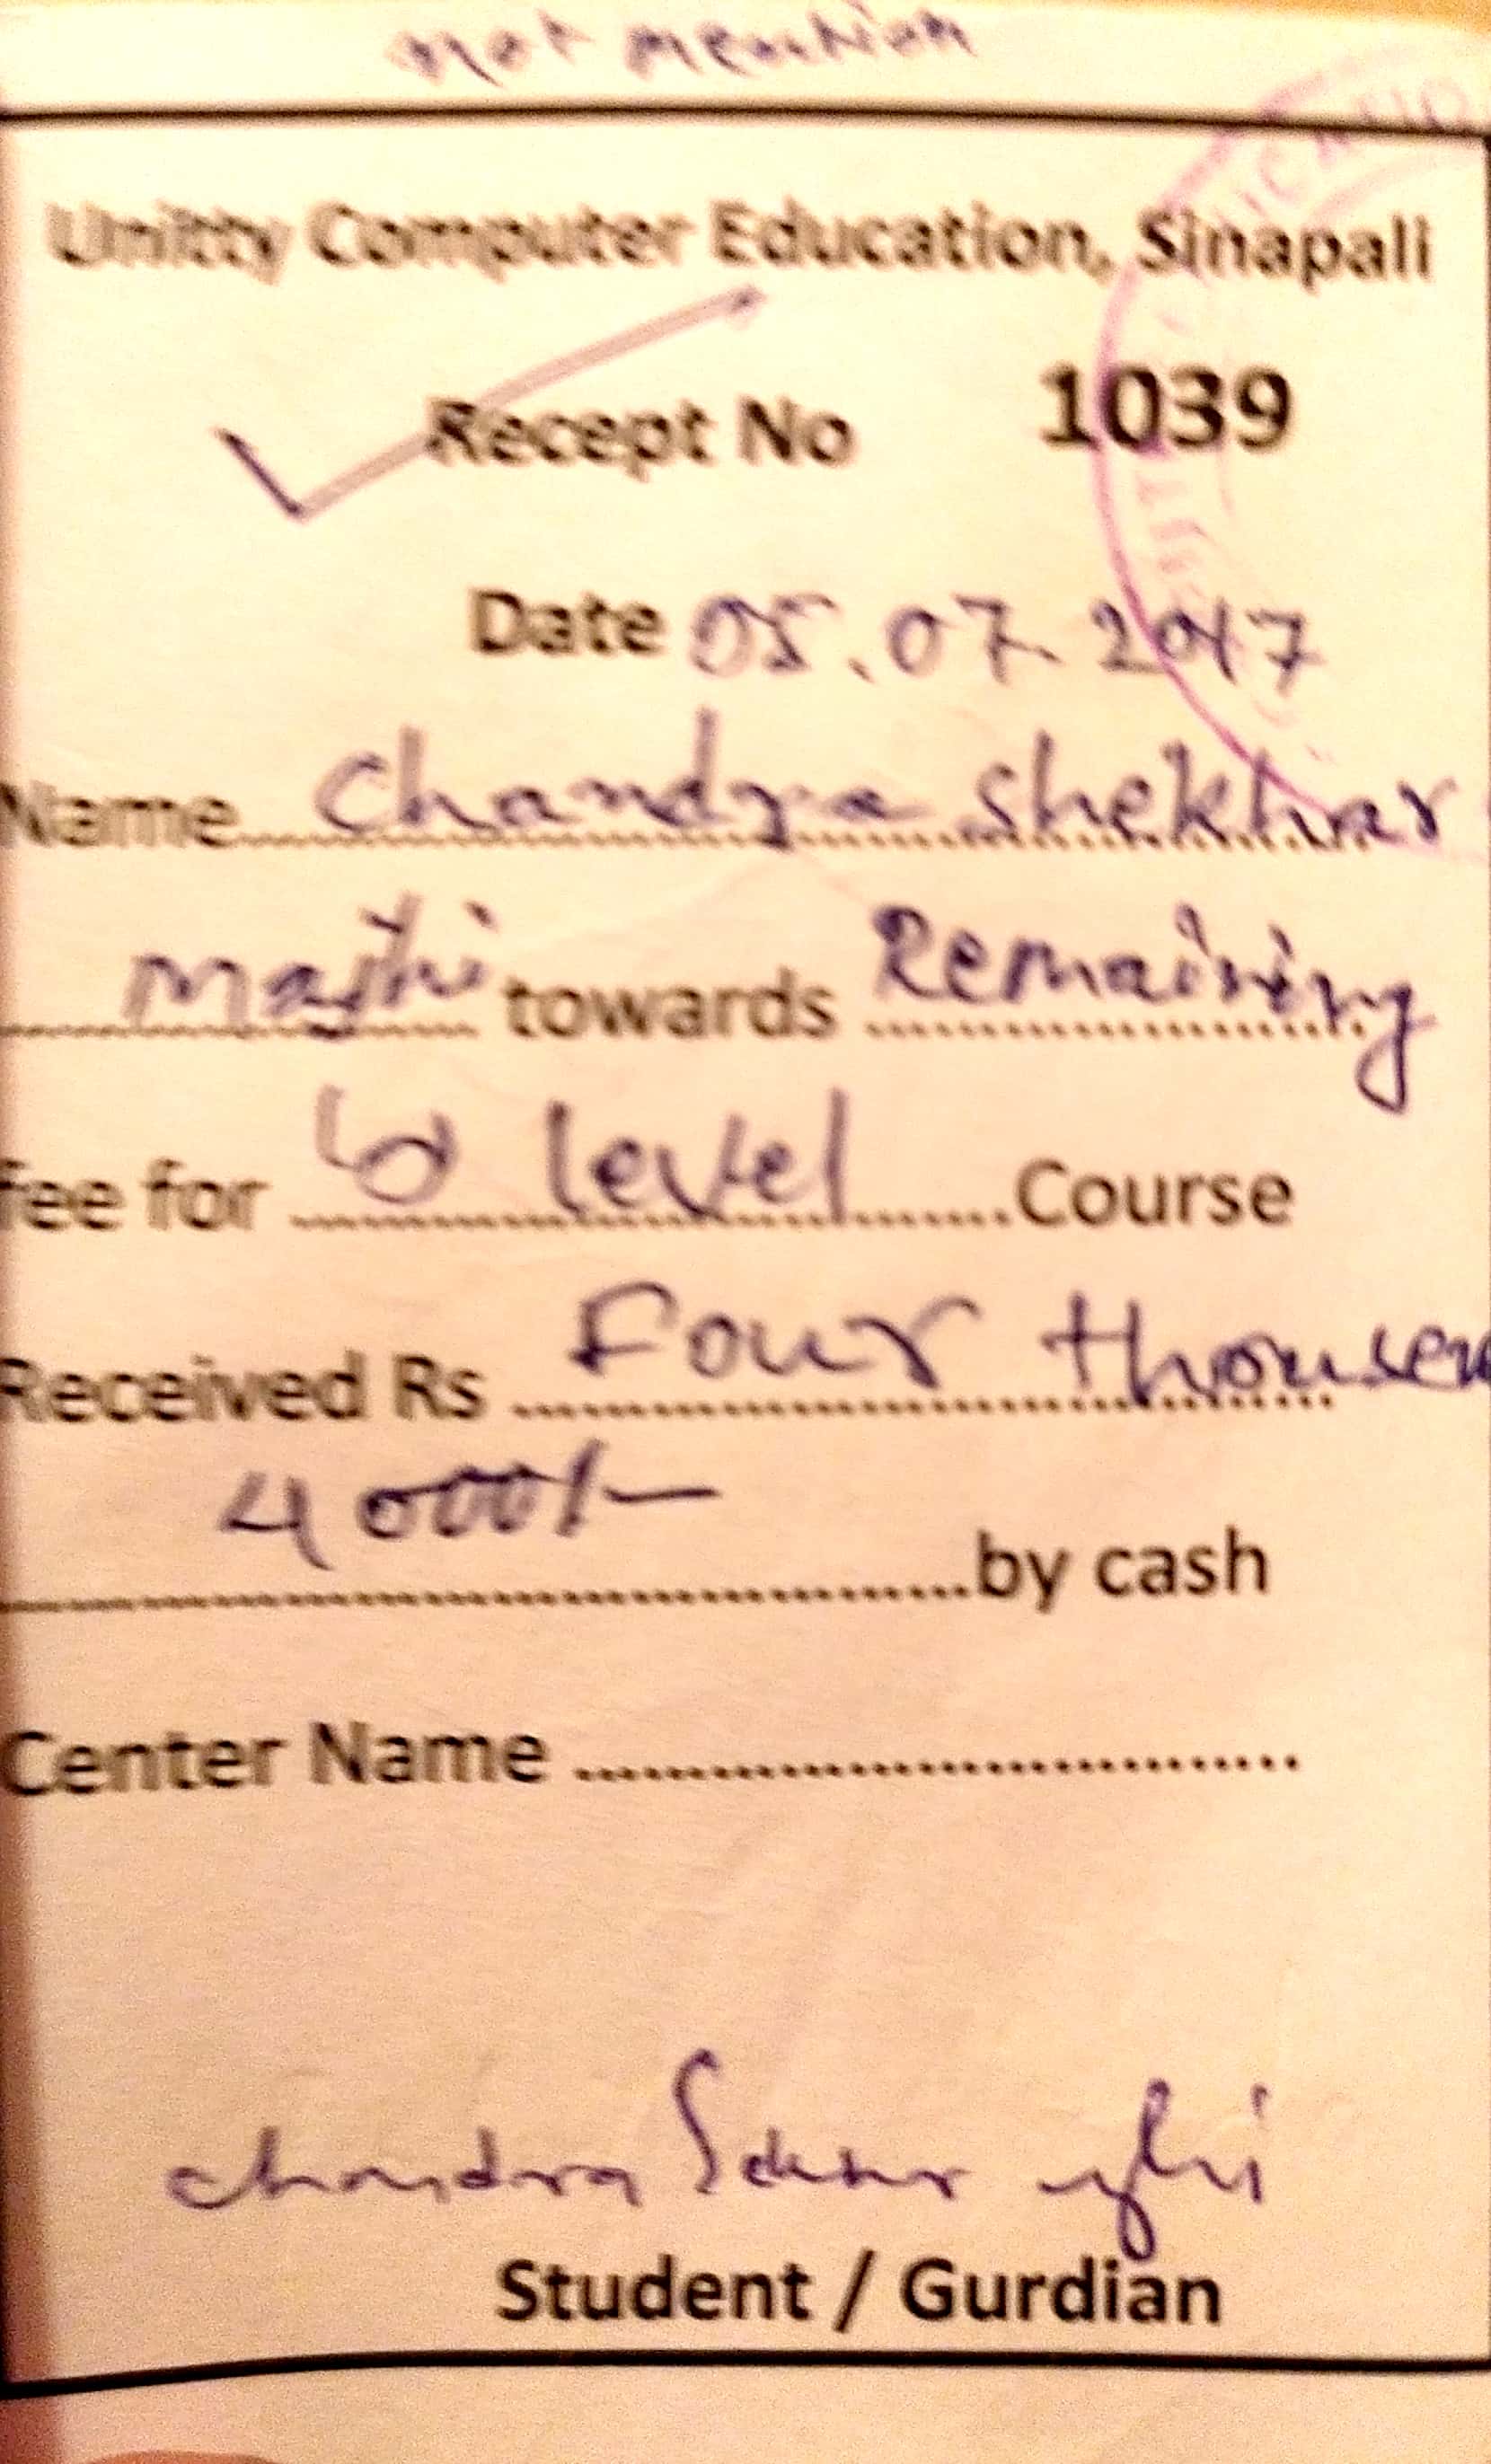 not mention
Unitty Computer Education, Sinapali
Recept No 1039
Date 05.07.2017
Name Chandra Shekhar
Majhi towards Remaining
fee for "O" level Course
Received Rs Four thousen
4000/-
by cash
Center Name
Chandra Sekhar Majhi
Student / Gurdian